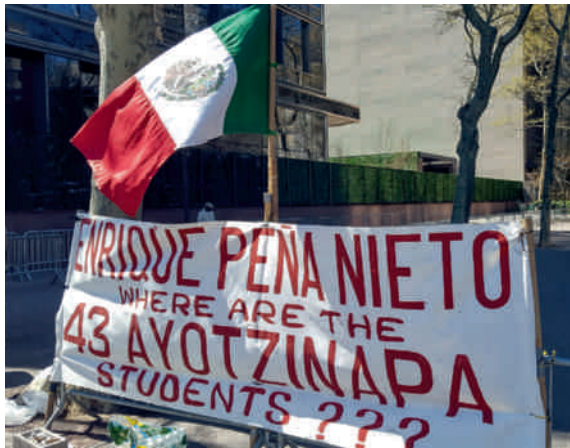 ENRIQUE PEÑA NIETO
WHERE ARE THE
43 AYOTZINAPA
STUDENTS ???